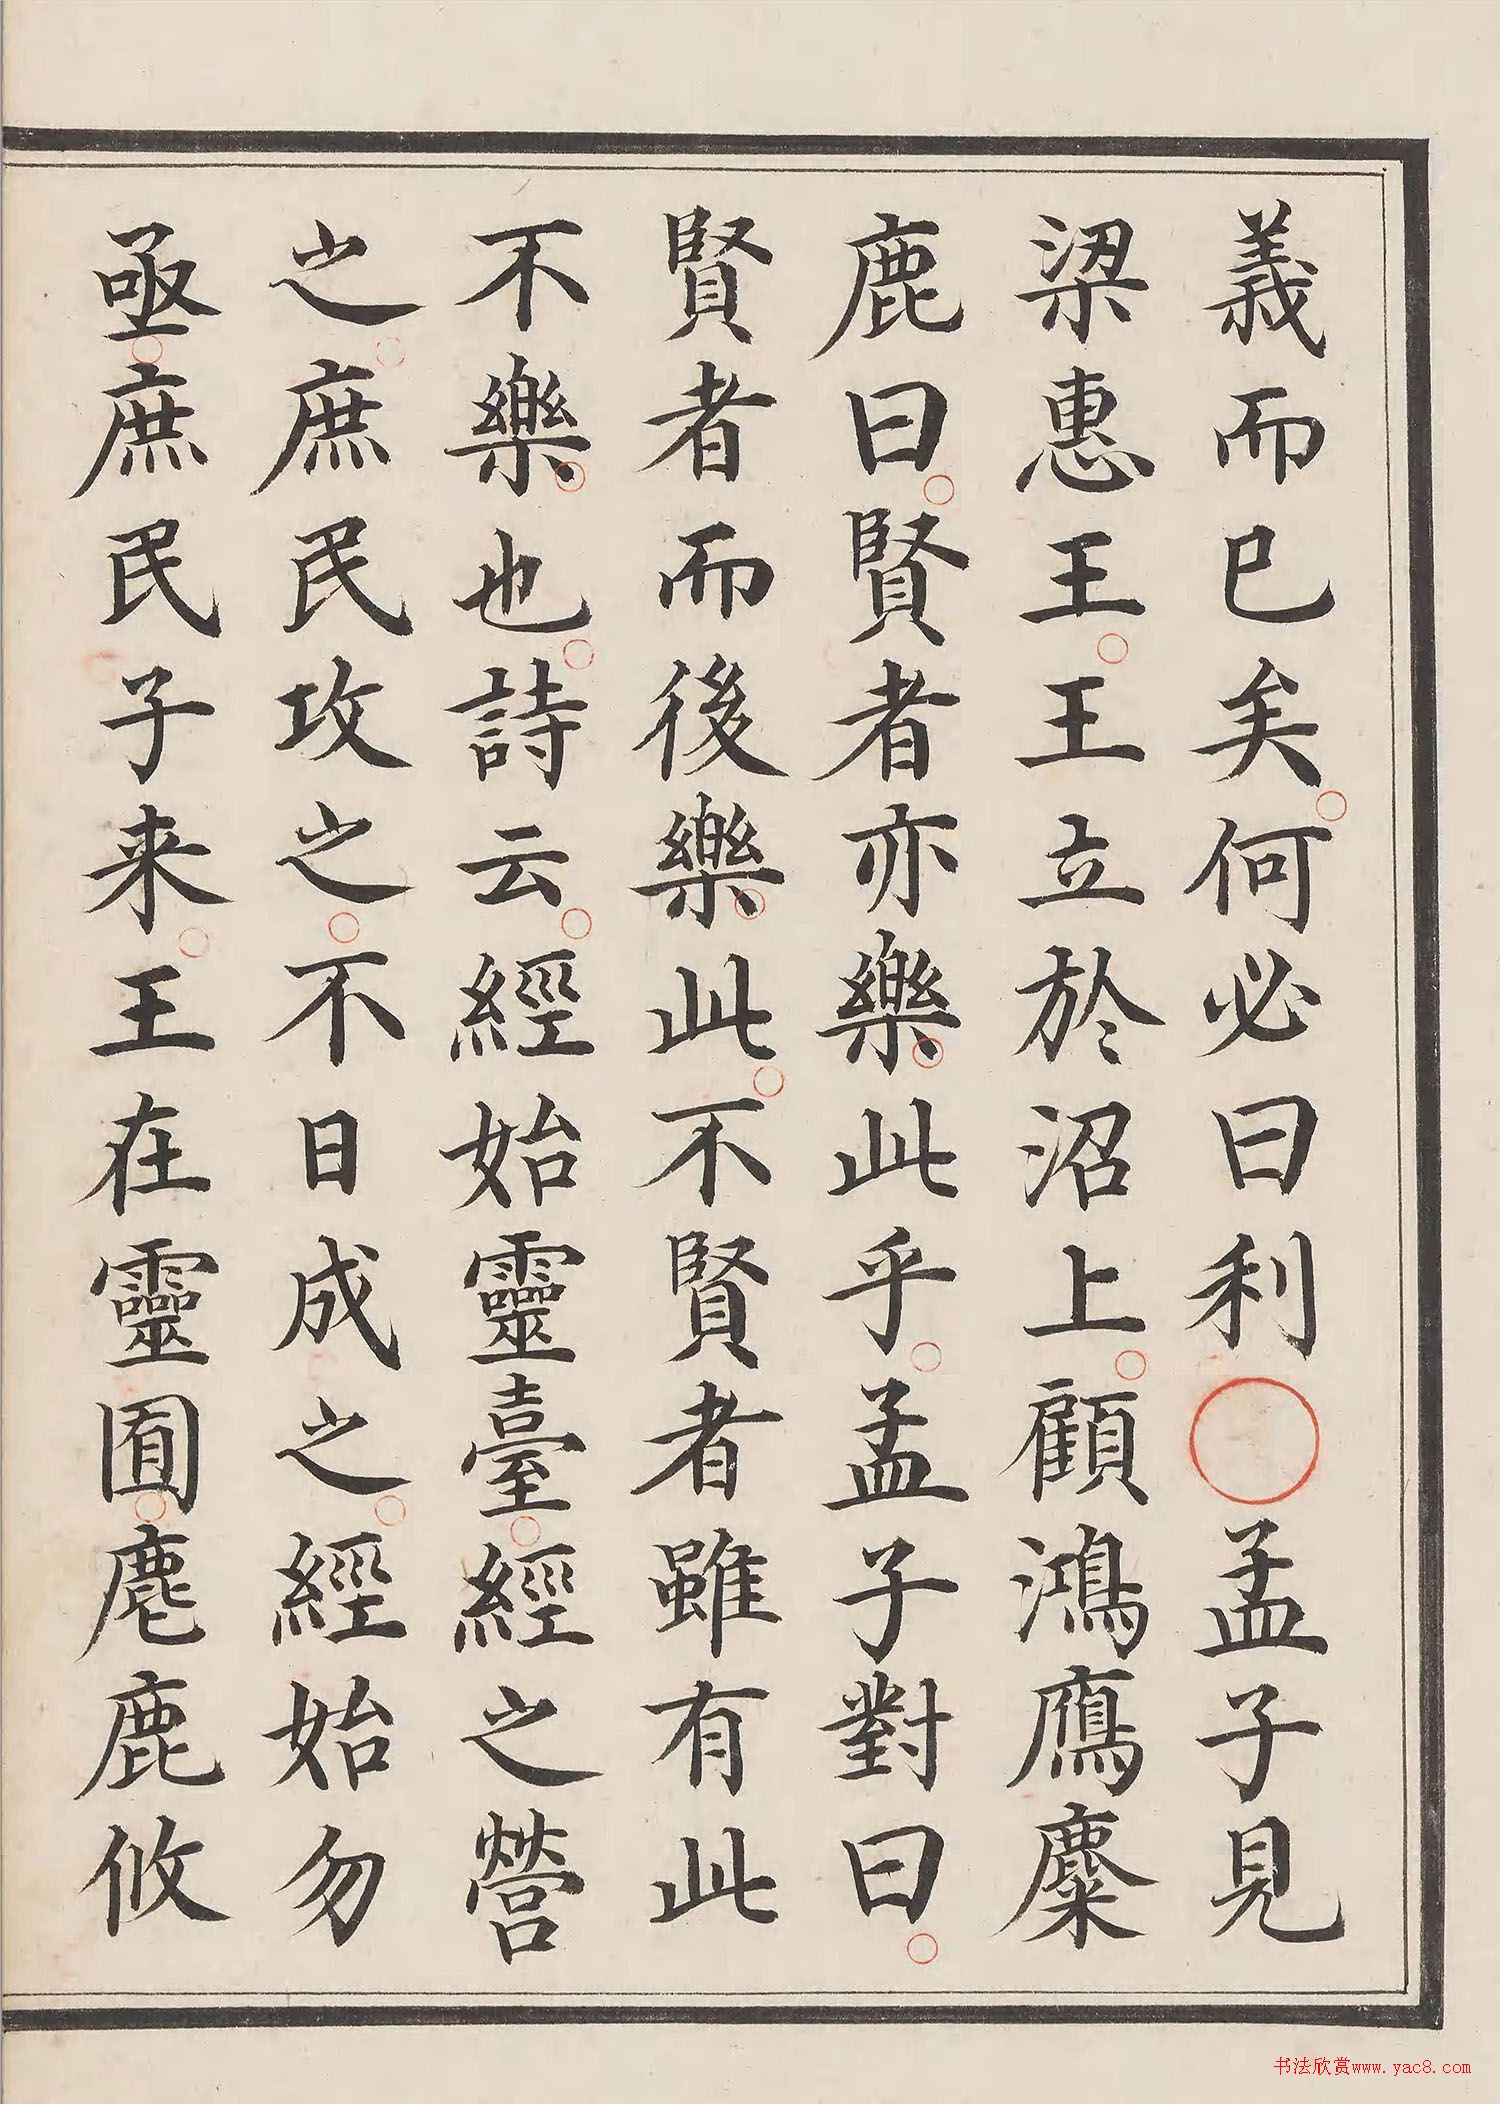 義而已矣何必曰利〇孟子見
梁惠王王立於沼上顧鴻鴈麋
鹿曰賢者亦樂此乎孟子對曰
賢者而後樂此不賢者雖有此
不樂也詩云經始靈臺經之營
之庶民攻之不日成之經始勿
亟庶民子来王在靈囿麀鹿攸
书法欣赏www.yac8.com